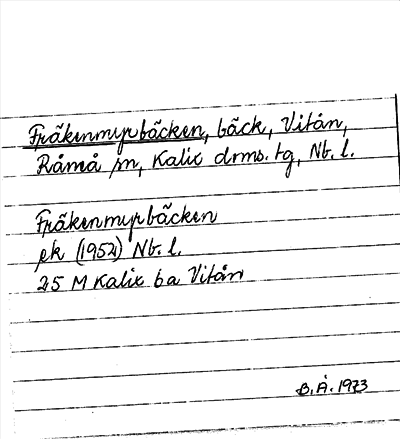 Fräkenmyrbäcken, bäck, Vitån,
Råneå sn, Kalix drms. tg, Nb. l.
Fräkenmyrbäcken
ek (1952) Nb. l.
25 M Kalix 6a Vitån
B.Å. 1973